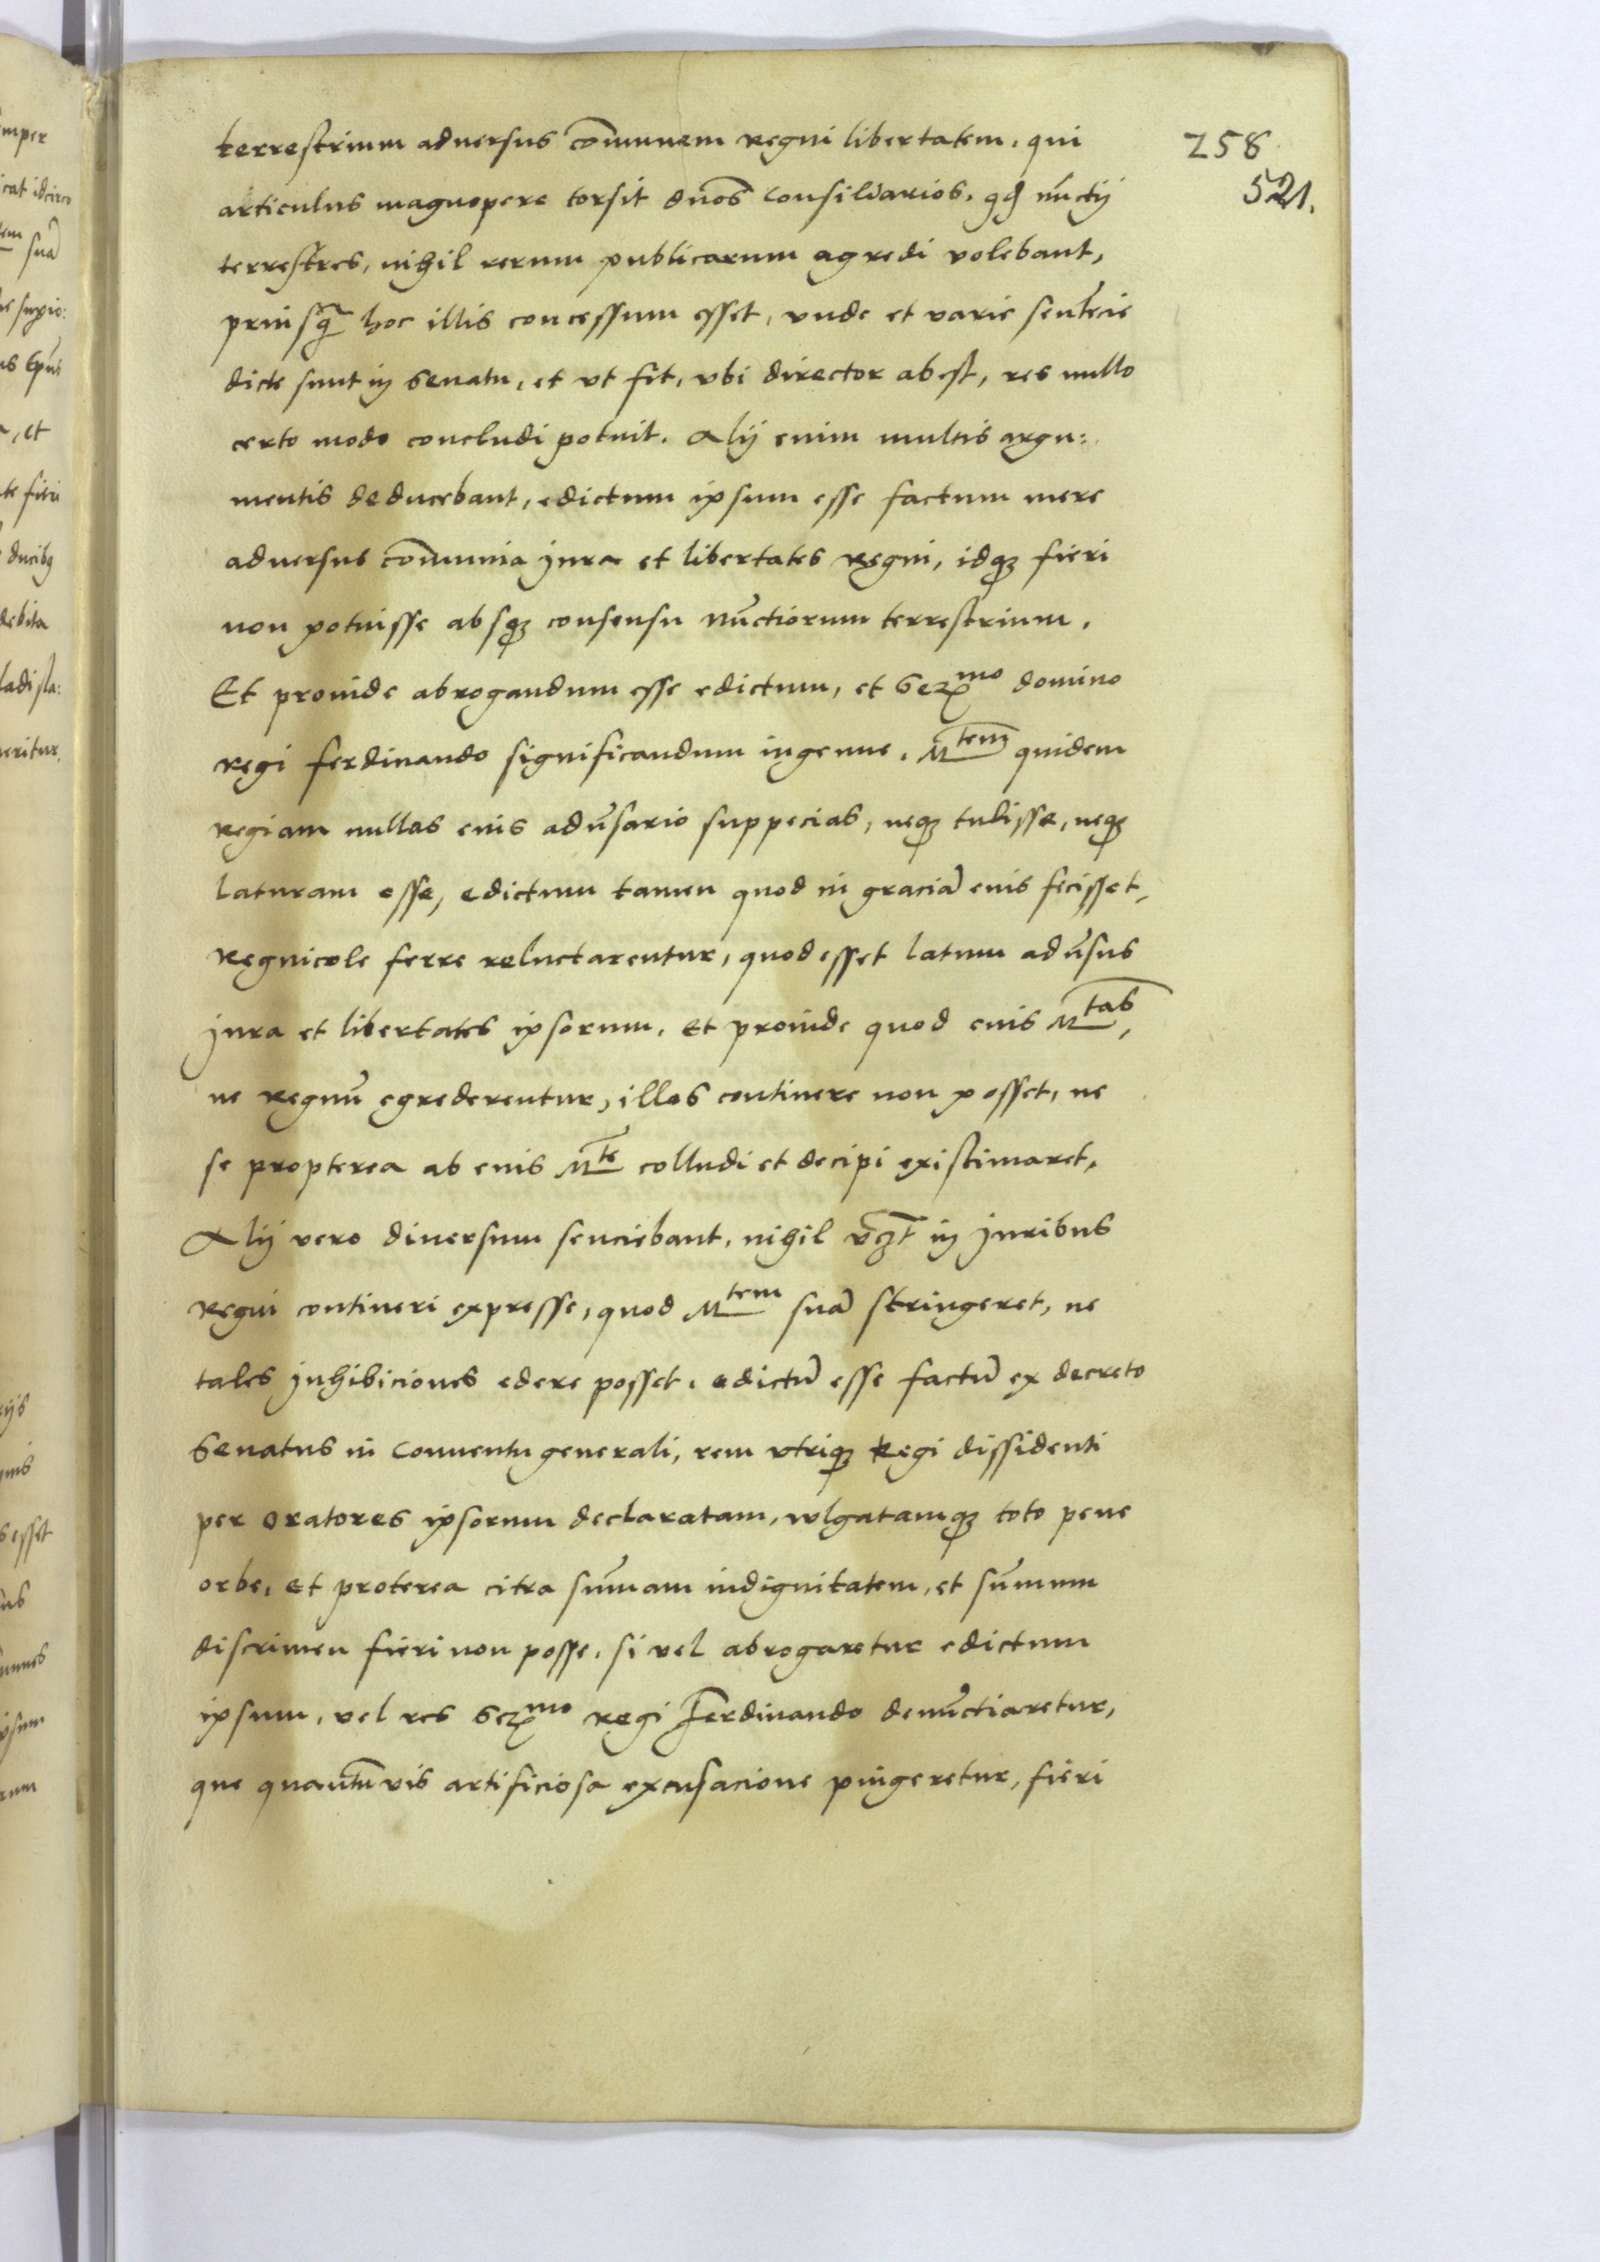 258
521.
terrestrium aduersus co͞munem regni libertatem, qui
articulus magnopere torsit dn̄os Consiliarios, qd nu͞ctij
terrestres, nihil rerum publicarum agredi volebant,
priusq̄ hoc illis concessum esset, vnde et varie sente͞cie
dicte sunt in Senatu, et vt fit, vbi director abest, res nullo
certo modo concludi potuit. Alij enim multis argu:
mentis deducebant, edictum ipsum esse factum mere
aduersus co͞munia jura et libertates Regni, idq; fieri
non potuisse absq; consensu Nu͞ctiorum terrestrium.
Et proinde abrogandum esse edictum, et Ser^mo domino
regi ferdinando significandum ingenue, M^tem quidem
Regiam nullas eius adu͞sario suppecias, neq; tulisse, neq;
laturam esse, edictum tamen quod in gracia͞ eius fecisset,
Regnicole ferre reluctarentur, quod esset latum adu͞sus
jura et libertates ipsorum, Et proinde quod eius M^tas,
ne regnu͞ egrederentur, illos continere non posset, ne
se propterea ab eius M^te colludi et decipi existimaret,
Alij vero diuersum senciebant, nihil in juribus
Regni contineri expresse, quod M^tem sua͞ stringeret, ne
tales jnhibiciones edere posset, edictu͞ esse factu͞ ex decreto
Senatus in Conuentu generali, rem vtriq; Regi dissidenti
per oratores ipsorum declaratam, vulgatamq; toto pene
orbe, et proterea citra sum͞am indignitatem, et sum͞um
discrimen fieri non posse, si vel abrogaretur edictum
ipsum, vel res Ser^mo regi Ferdinando denu͞ctiaretur,
que quantu͞vis artificiosa excusacione pingeretur, fieri